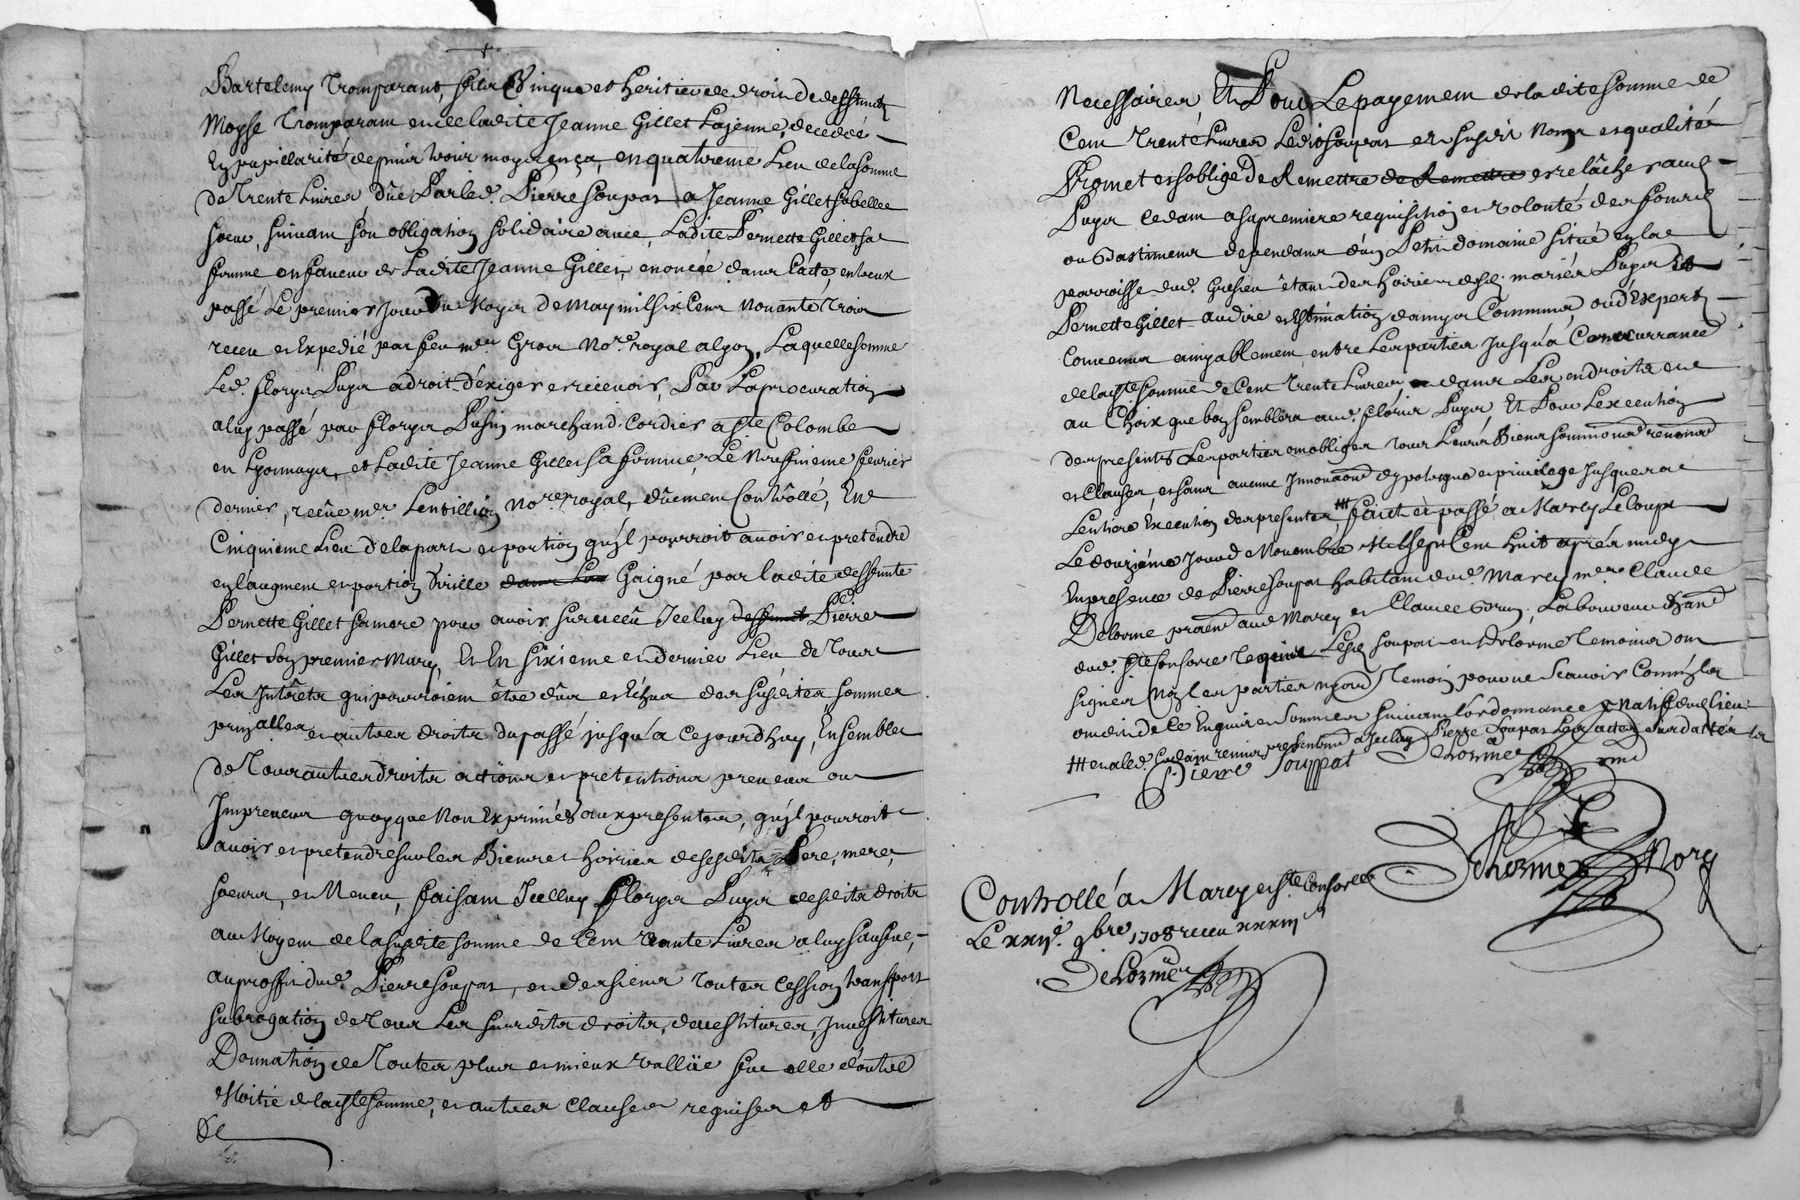 Bartelemy Tromparant, filz Unique et heritier de droit de deffunct
Moyse Tromparant et de ladite Jeanne Gillet La jeune, decedée
En pupilarité depuis trois moys en ça, en quatrieme Lieu de la somme
de Trente Livres dûe Par led. Pierre Soupat a Jeanne Gillet sa belle
soeur, suivant son obligation solidaire avec Ladite Pernette Gillet, sa
femme en faveur de Ladite Jeanne Gillet, enoncée dans l'acte, entreux
passé Le premier jour du Moys de May mil six Cent Nonante Trois
receu et Expedié par feu me Gros Nore royal a lyon, Laquelle somme
Led. florys Puys a droit d'exiger et recevoir, Par La procuration
a luy passé par florys Pusin marchand Cordier a Ste Colombe
en Lyonnays, et Ladite Jeanne Gillet sa femme, Le Neufvieme fevrier
dernier, receüe me Lentillion Nore royal, dûement Controllé, En
Cinquieme Lieu de la part et portion qu'yl pourroit avoir et pretendre
en l'augment et portion Virille dans Les Gaigné par ladite deffunte
Pernette Gillet sa mere pour avoir survecû Icelluy deffunct Pierre
Gillet son premier Mary, Et En sixieme et dernier Lieu de Tous
Les Intêrets qui pourroient être dûs et Echus des susdites sommes
prinçalles et autres droits du passé jusqu'a Ce jourdhuy, Ensemble
de Tous autres droits actions et pretentions preveus ou
Impreveus quoyque Non Exprimés aux presentes, qu'yl pourroit
avoir et pretendre sur les Biens et hoiries desdits Pere, mere,
soeurs, et Neveu, faisant Icelluy florys Puys desdits droits
au Moyen de la susdite somme de Cent Trente Livres a luy sauf
au proffit dud. Pierre Soupat, et des siens Toutes Cession transport
subrogation de Tous Les susdits droits, devestitures, Investitures
Donnation de Toutes plus et mieux vallüe sur elle d'outre
Moitié de ladte somme, et autres Clauses requises et
&c
Necessaires Et Pour Le payement de la dite somme de
Cent Trente Livres Ledit Soupat et susdit Noms et qualités
Promet et s'oblige De Remettre de Remettre et relâcher aud.
Puys cedant a sa premiere requisition et volonté des fonds
ou Bastimens dependans d'un Petit domaine situé en la
parroisse dud. Gresieu étans des hoiries desd. mariés Puys Et
Pernette Gillet au dire et Estimation d'amys Communs, ou d'Experts
Convenus amyablement entre Les parties jusqu'a Concurrance
de ladte somme de Cent Trente Livres et dans Les endroits et
au Choix que bon semblera aud. florys Puys, Et Pour L'execution
des presents Les parties ont obligés Tous Leurs Biens soumissions renonons
et Clauses et sans aucune Innovaon d'ypoteque et privilege Jusques a
L'entiere Execution des presentes ### fait et passé a Marcy Le Loup
Le douzieme jour de Novembre Mil sept Cent huit aprés midy
En presence de Pierre Soupat habitant dud. Marcy me Claude
Delorme praen aud Marcy et Claude Brun, Laboureur dhant
dud. Ste Consorce Requis Lesd. Soupat et Delorme Temoins ont
signés Non les parties ny led Temoin pour ne Scavoir Comm'yls
ont dit de ce Enquis et Sommés suivant l'ordonnance & Natif dud lieu
### et a led. cedant remis presentemt a Jcelluy Pierre Soupat Les actes sus dattés
Pierre Souppat Delorme
Delorme Nore
Controllé a Marcy et Ste Consorce
Le xxije 9bre 1708 receu xxxiijs
Delorme